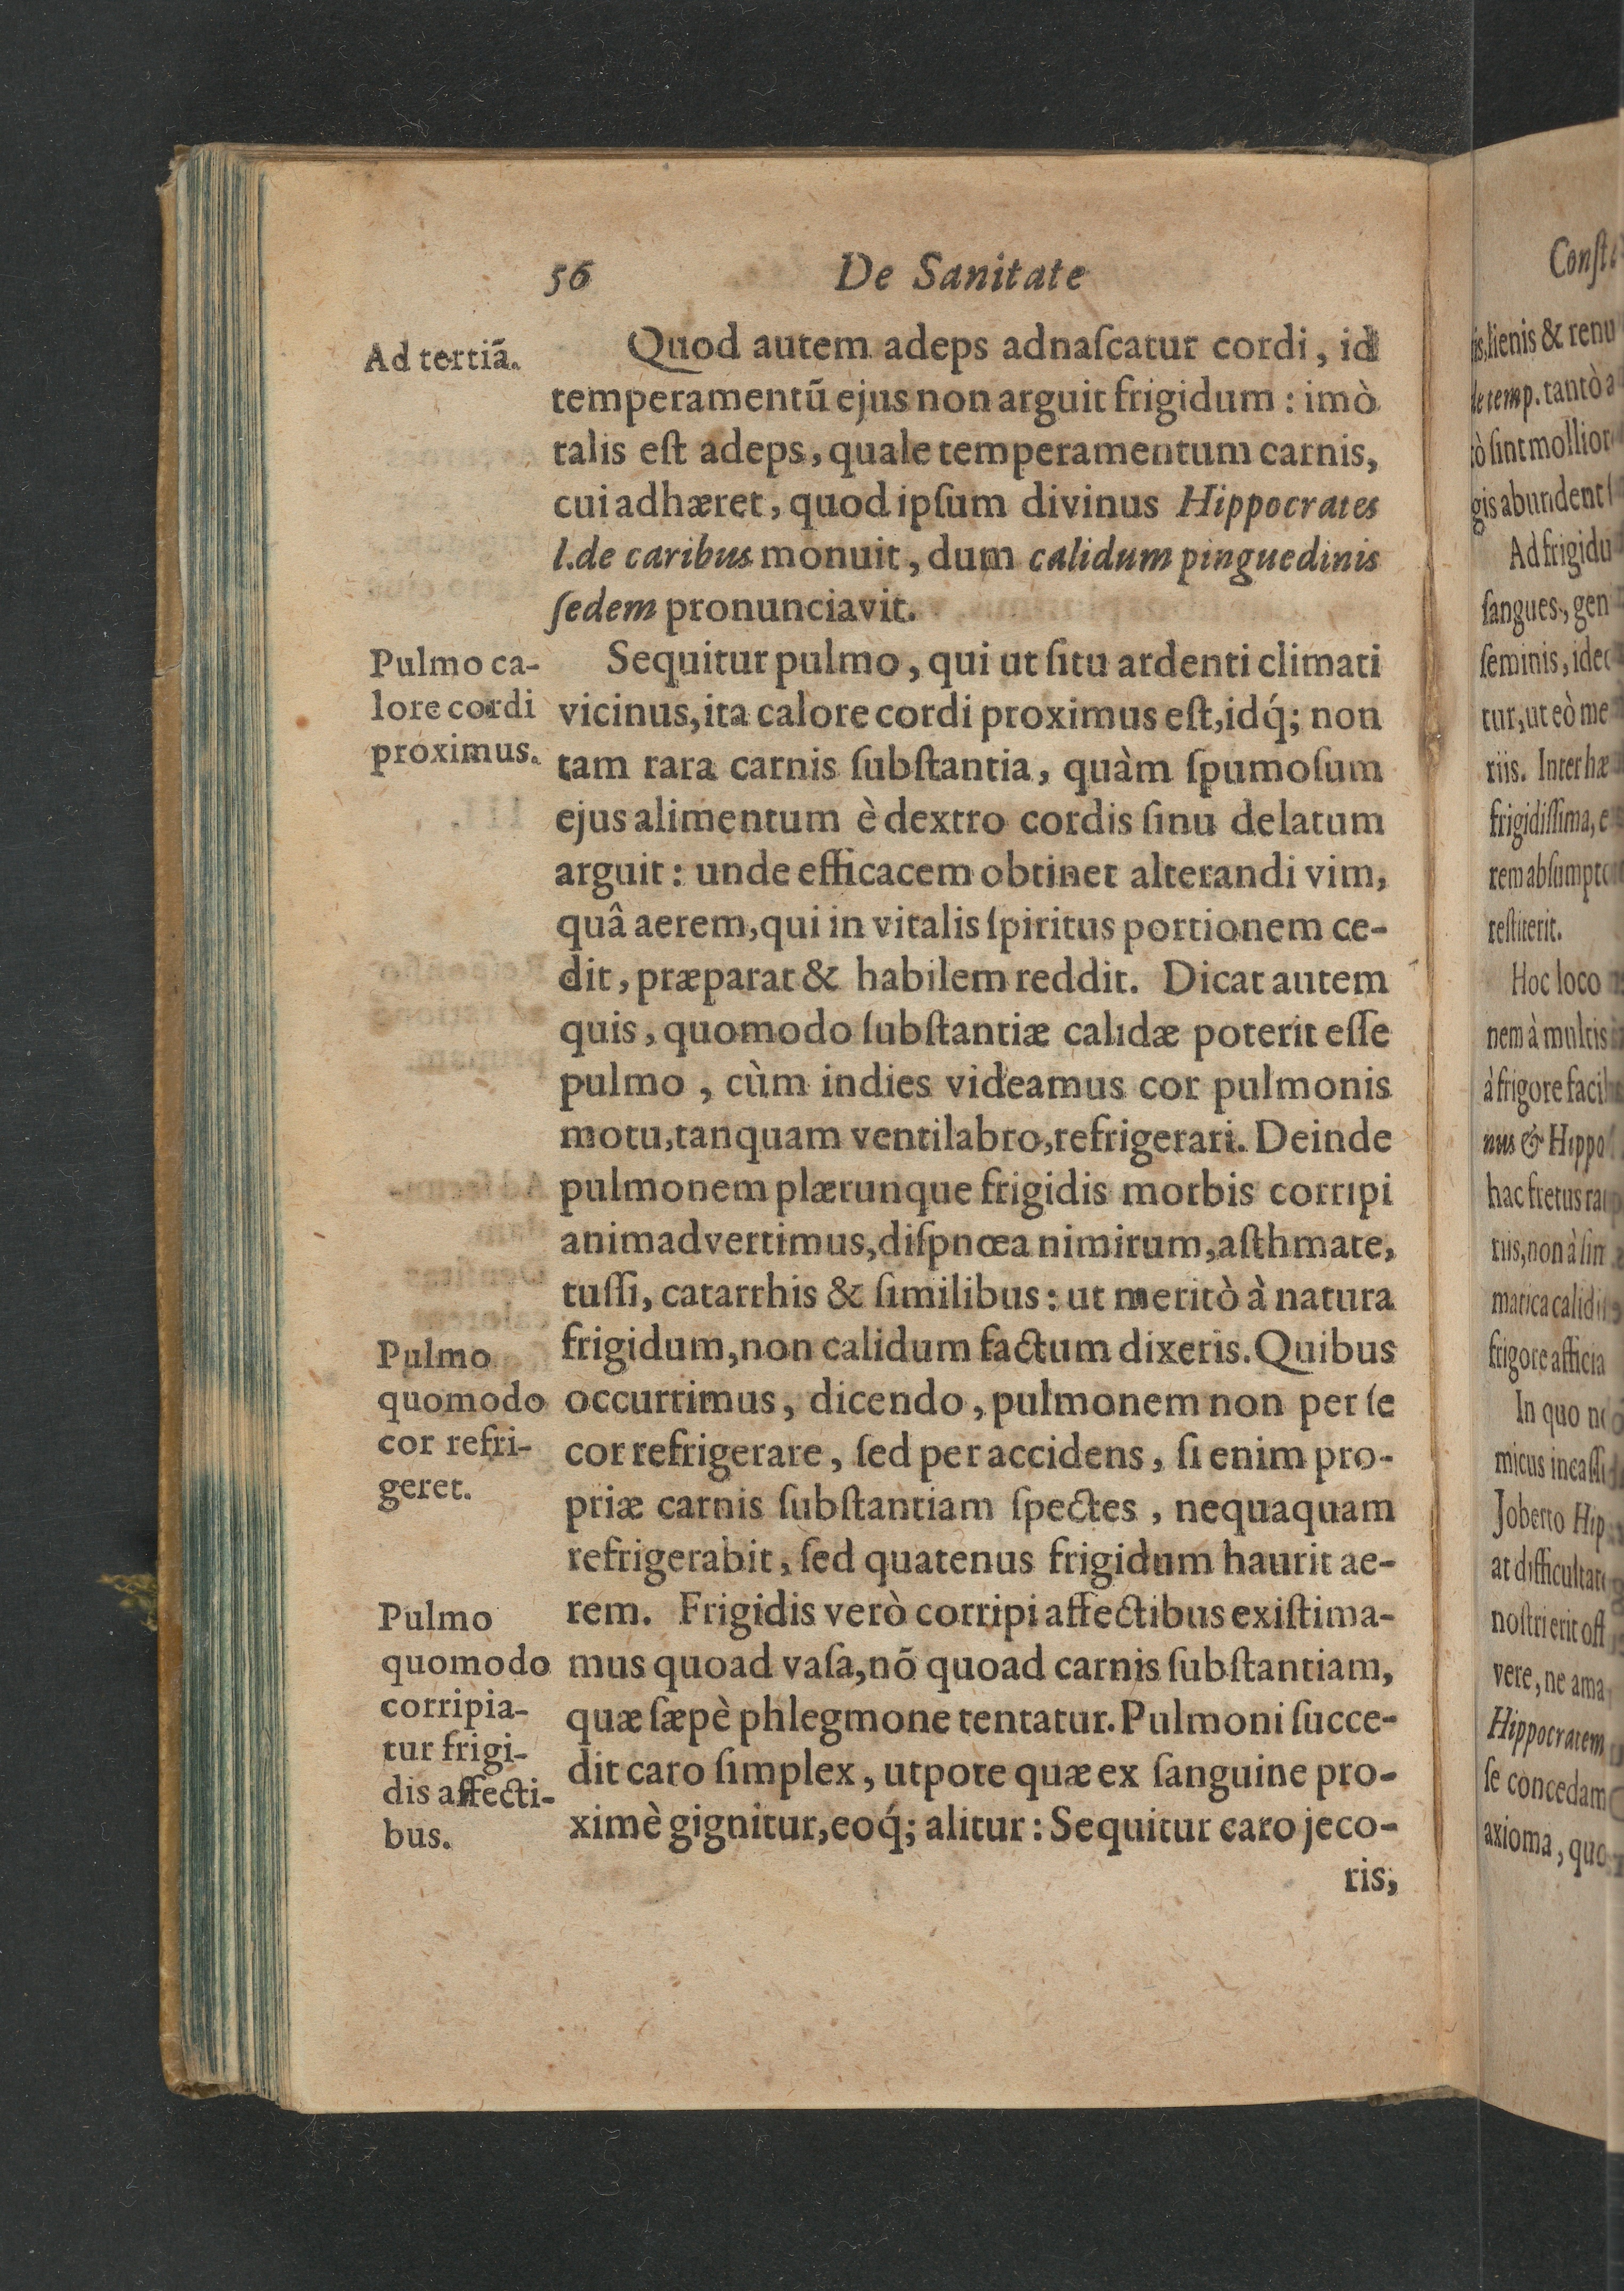 56 De Sanitate
Ad tertiã.
Quod autem adeps adnaſcatur cordi, id
temperamentũ ejus non arguit frigidum: imò
talis eſt adeps, quale temperamentum carnis,
cui adhæret, quod ipſum divinus Hippocrates
l. de caribus monuit, dum calidum pinguedinis
ſedem pronunciavit.
Pulmo ca-
lore cordi
proximus.
Sequitur pulmo, qui ut ſitu ardenti climati
vicinus, ita calore cordi proximus eſt, idq́; non
tam rara carnis ſubſtantia, quàm ſpumoſum
ejus alimentum è dextro cordis ſinu delatum
arguit: unde efficacem obtinet alterandi vim,
quâ aerem, qui in vitalis ſpiritus portionem ce-
dit, præparat & habilem reddit. Dicat autem
quis, quomodo ſubſtantiæ calidæ poterit eſſe
pulmo, cùm indies videamus cor pulmonis
motu, tanquam ventilabro, refrigerari. Deinde
pulmonem plærunque frigidis morbis corripi
animadvertimus, diſpnœa nimirum, aſthmate,
tuſſi, catarrhis & ſimilibus: ut meritò à natura
frigidum, non calidum factum dixeris. Quibus
occurrimus, dicendo, pulmonem non per ſe
cor refrigerare, ſed per accidens, ſi enim pro-
priæ carnis ſubſtantiam ſpectes, nequaquam
refrigerabit, ſed quatenus frigidum haurit ae-
rem. Frigidis verò corripi affectibus exiſtima-
mus quoad vaſa, nõ quoad carnis ſubſtantiam,
quæ ſæpè phlegmone tentatur. Pulmoni ſucce-
dit caro ſimplex, utpote quæ ex ſanguine pro-
ximè gignitur, eoq́; alitur: Sequitur caro jeco-
ris,
Pulmo
quomodo
cor refri-
geret.
Pulmo
quomodo
corripia-
tur frigi-
dis affecti-
bus.
lienis & renu
temp. tantò
ſint mollior
gis abundent
Ad frigidu
ſangues, gen
ſeminis, idec
tur, ut eò me
riis. Inter hæ
frigidiſſima, e
rem abſumpt
reſtiterit.
Hoc loco
nem à multis
à frigore faci
nus & Hippo
hac fretus ra
riis, non à ſin
matica calidi
frigore afficia
In quo n
micus incaſſ
Joberto Hip
at difficultat
noſtri erit oſt
vere, ne ama
Hippocratem
ſe concedam
axioma, quo